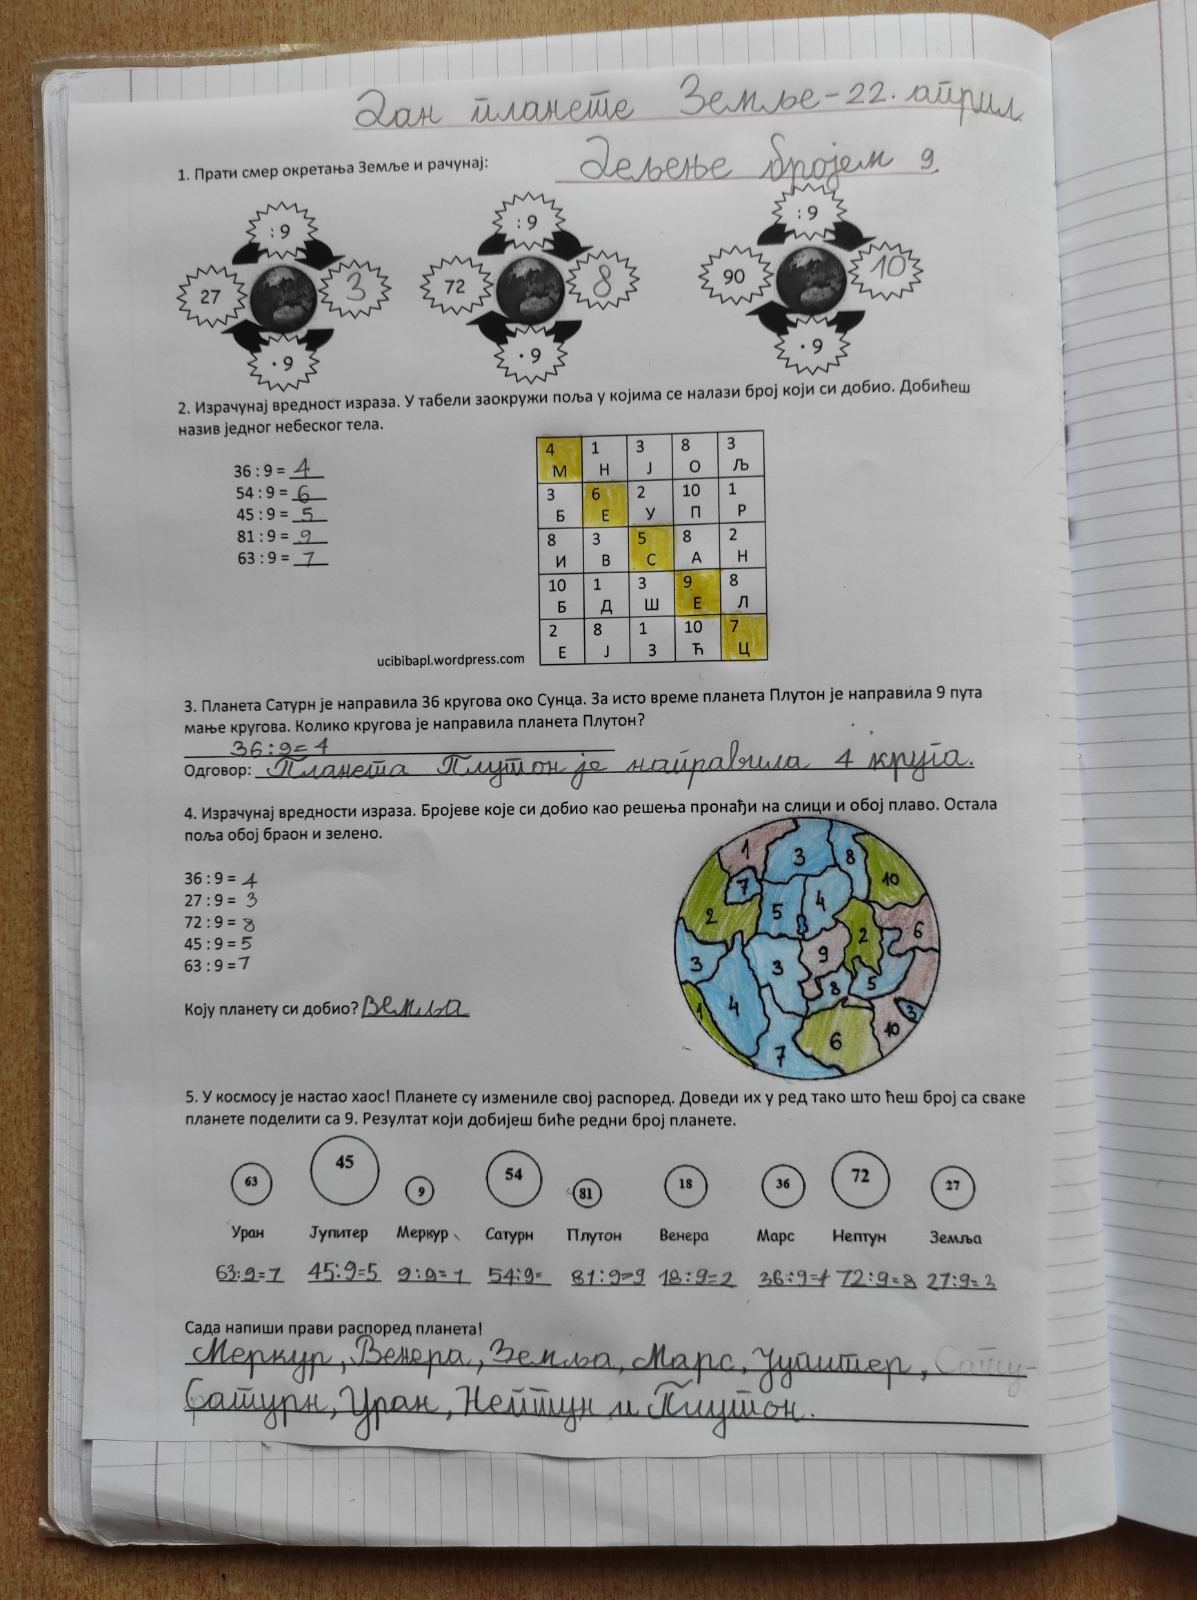 Дан планете Земље - 22. април
1. Прати смер окретања Земље и рачунај:
Дељење бројем 9
:9 :9 :9
27 3 72 8 90 10
·9 ·9 ·9
2. Израчунај вредност израза. У табели заокружи поља у којима се налази број који си добио. Добићеш
назив једног небеског тела.
36 : 9 = 4
54 : 9 = 6
45 : 9 = 5
81 : 9 = 9
63 : 9 = 7
4 1 3 8 3
М Н Ј О Љ
3 6 2 10 1
Б Е У П Р
8 3 5 8 2
И В С А Н
10 1 3 9 8
Б Д Ш Е Л
2 8 1 10 7
Е Ј З Ћ Ц
ucibibapl.wordpress.com
3. Планета Сатурн је направила 36 кругова око Сунца. За исто време планета Плутон је направила 9 пута
мање кругова. Колико кругова је направила планета Плутон?
36:9=4
Одговор: Планета Плутон је направила 4 круга.
4. Израчунај вредности израза. Бројеве које си добио као решења пронађи на слици и обој плаво. Остала
поља обој браон и зелено.
36 : 9 = 4
27 : 9 = 3
72 : 9 = 8
45 : 9 = 5
63 : 9 = 7
1 3 8
7 10
2 5 4
8 2 6
3 3 9
4 8 5
1 10 3
7 6
Коју планету си добио? Земља
5. У космосу је настао хаос! Планете су измениле свој распоред. Доведи их у ред тако што ћеш број са сваке
планете поделити са 9. Резултат који добијеш биће редни број планете.
63 45 9 54 81 18 36 72 27
Уран Јупитер Меркур Сатурн Плутон Венера Марс Нептун Земља
63:9=7 45:9=5 9:9=1 54:9= 81:9=9 18:9=2 36:9=4 72:9=8 27:9=3
Сада напиши прави распоред планета!
Меркур, Венера, Земља, Марс, Јупитер, Сату-
Сатурн, Уран, Нептун и Плутон.